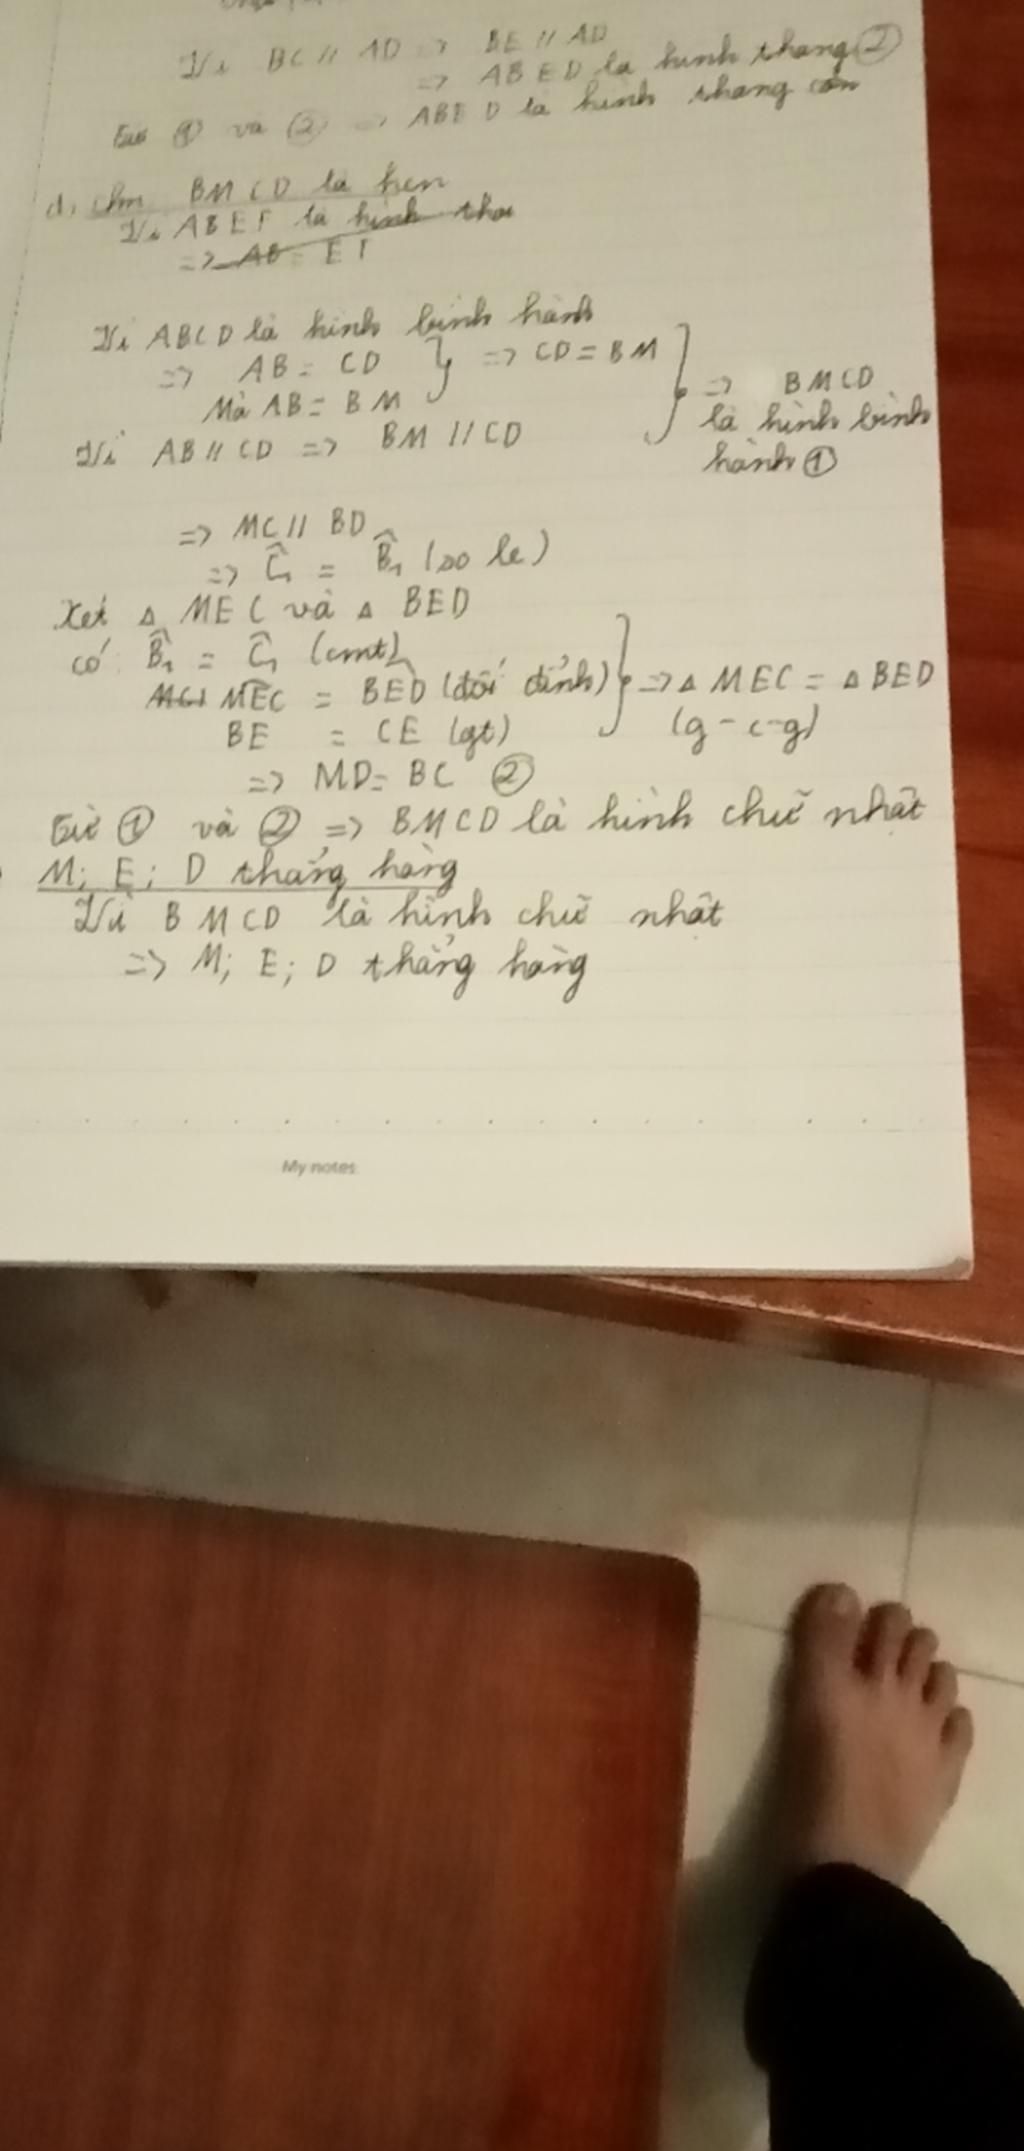 Vì BC // AD => BE // AD
=> ABED là hình thang ②
Từ ① và ② => ABED là hình thang cân
d, Cm BMCD là hcn
Vì ABEF là hình thoi
=> AB = EF
Vì ABCD là hình bình hành
=> AB = CD } => CD = BM } => BMCD
Mà AB = BM là hình bình
Vì AB // CD => BM // CD hành ①
=> MC // BD
=> Ĉ₁ = B̂₁ (so le)
Xét Δ MEC và Δ BED
có: B̂₁ = Ĉ₁ (cmt)
MEC = BED (đối đỉnh) } => Δ MEC = Δ BED
BE = CE (gt) (g-c-g)
=> MD = BC ②
Từ ① và ② => BMCD là hình chữ nhật
M; E; D thẳng hàng
Vì BMCD là hình chữ nhật
=> M; E; D thẳng hàng
My notes